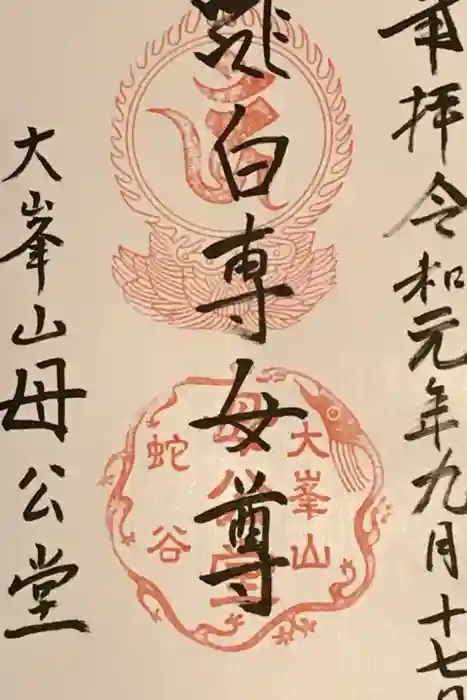 奉拝 令和元年九月十七日
白専女尊
大峯山
母公堂
蛇谷
大峯山母公堂